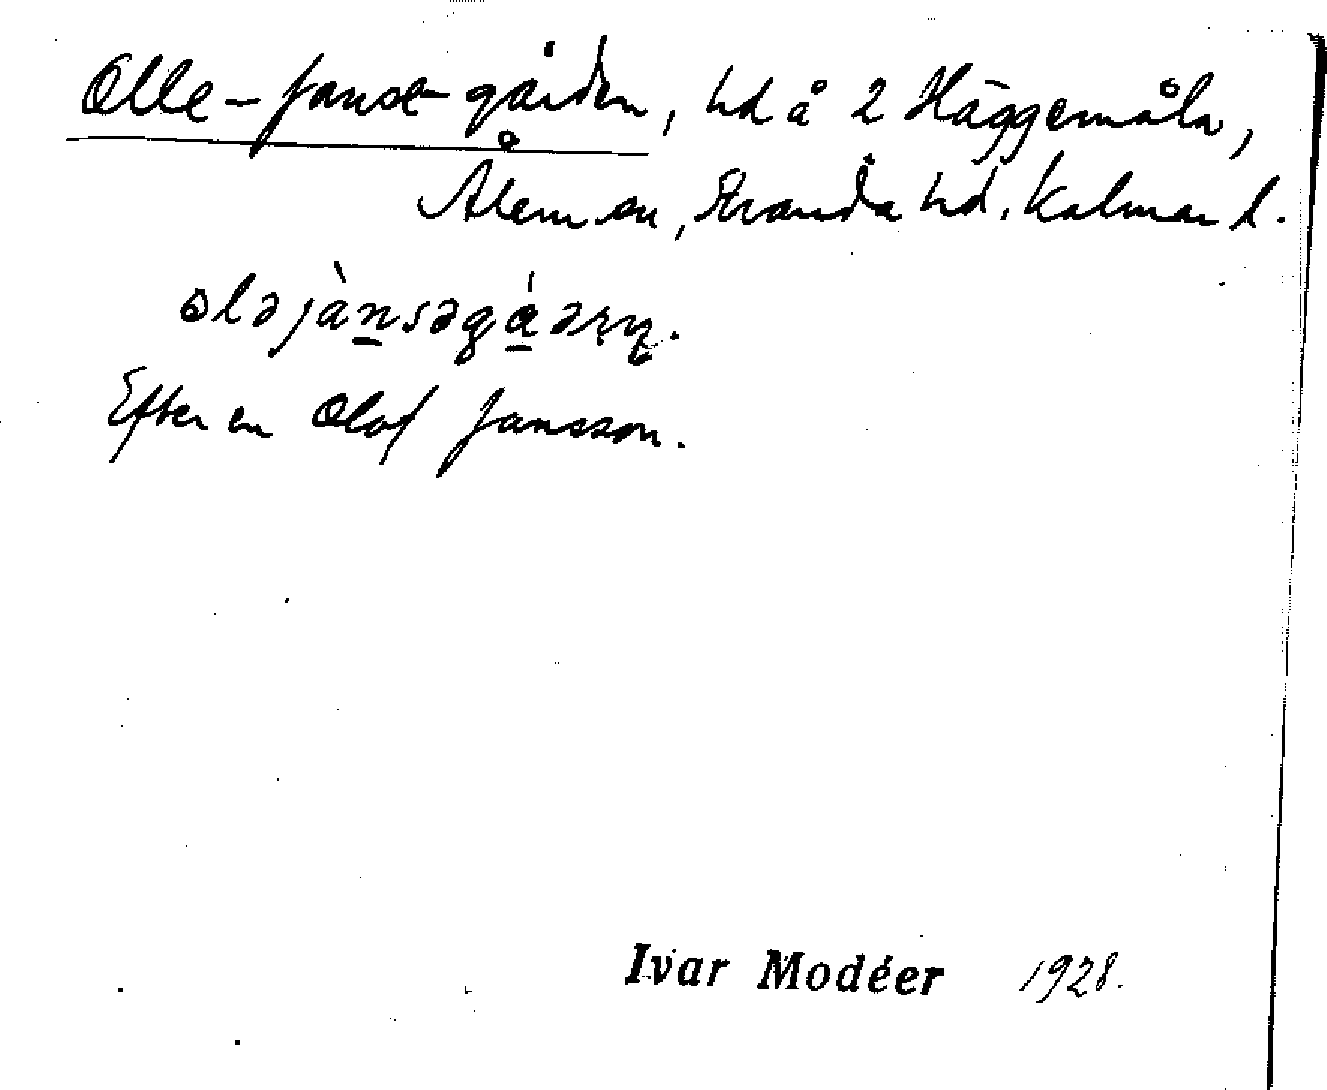 Olle-Janse-gården, hd å 2 Häggemåla,
Ålem sn, Stranda hd, Kalmar l.
Efter en Olof Jansson.
Ivar Modéer 1928.